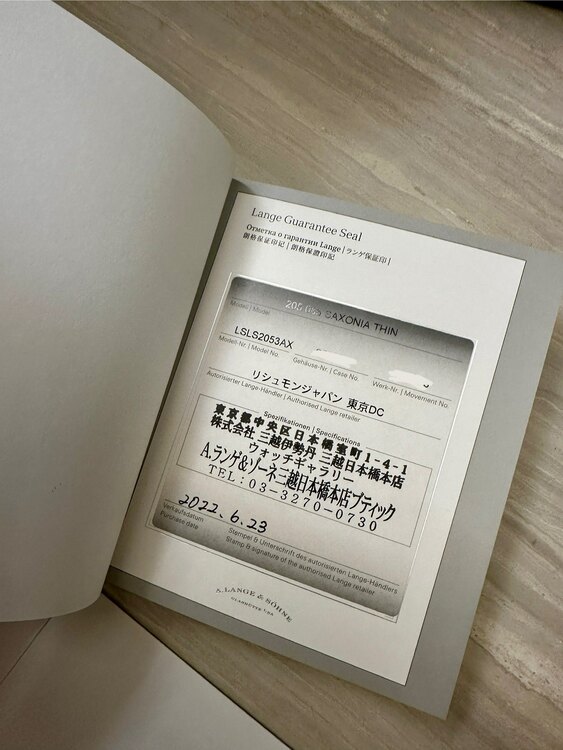 Lange Guarantee Seal
Отметка о гарантии Lange | ランゲ保証印 |
朗格保证印记 | 朗格保證印記
Modell | Model
SAXONIA THIN
LSLS2053AX
Modell-Nr. | Model No.
Gehäuse-Nr. | Case No.
Werk-Nr. | Movement No.
リシュモンジャパン 東京DC
Autorisierter Lange-Händler | Authorised Lange retailer
Spezifikationen | Specifications
東京都中央区日本橋室町1-4-1
株式会社 三越伊勢丹 三越日本橋本店
ウォッチギャラリー
A.ランゲ&ゾーネ三越日本橋本店ブティック
TEL:03-3270-0730
2022.6.23
Verkaufsdatum
Purchase date
Stempel & Unterschrift des autorisierten Lange-Händlers
Stamp & signature of the authorised Lange retailer
A. LANGE & SÖHNE
GLASHÜTTE I/SA